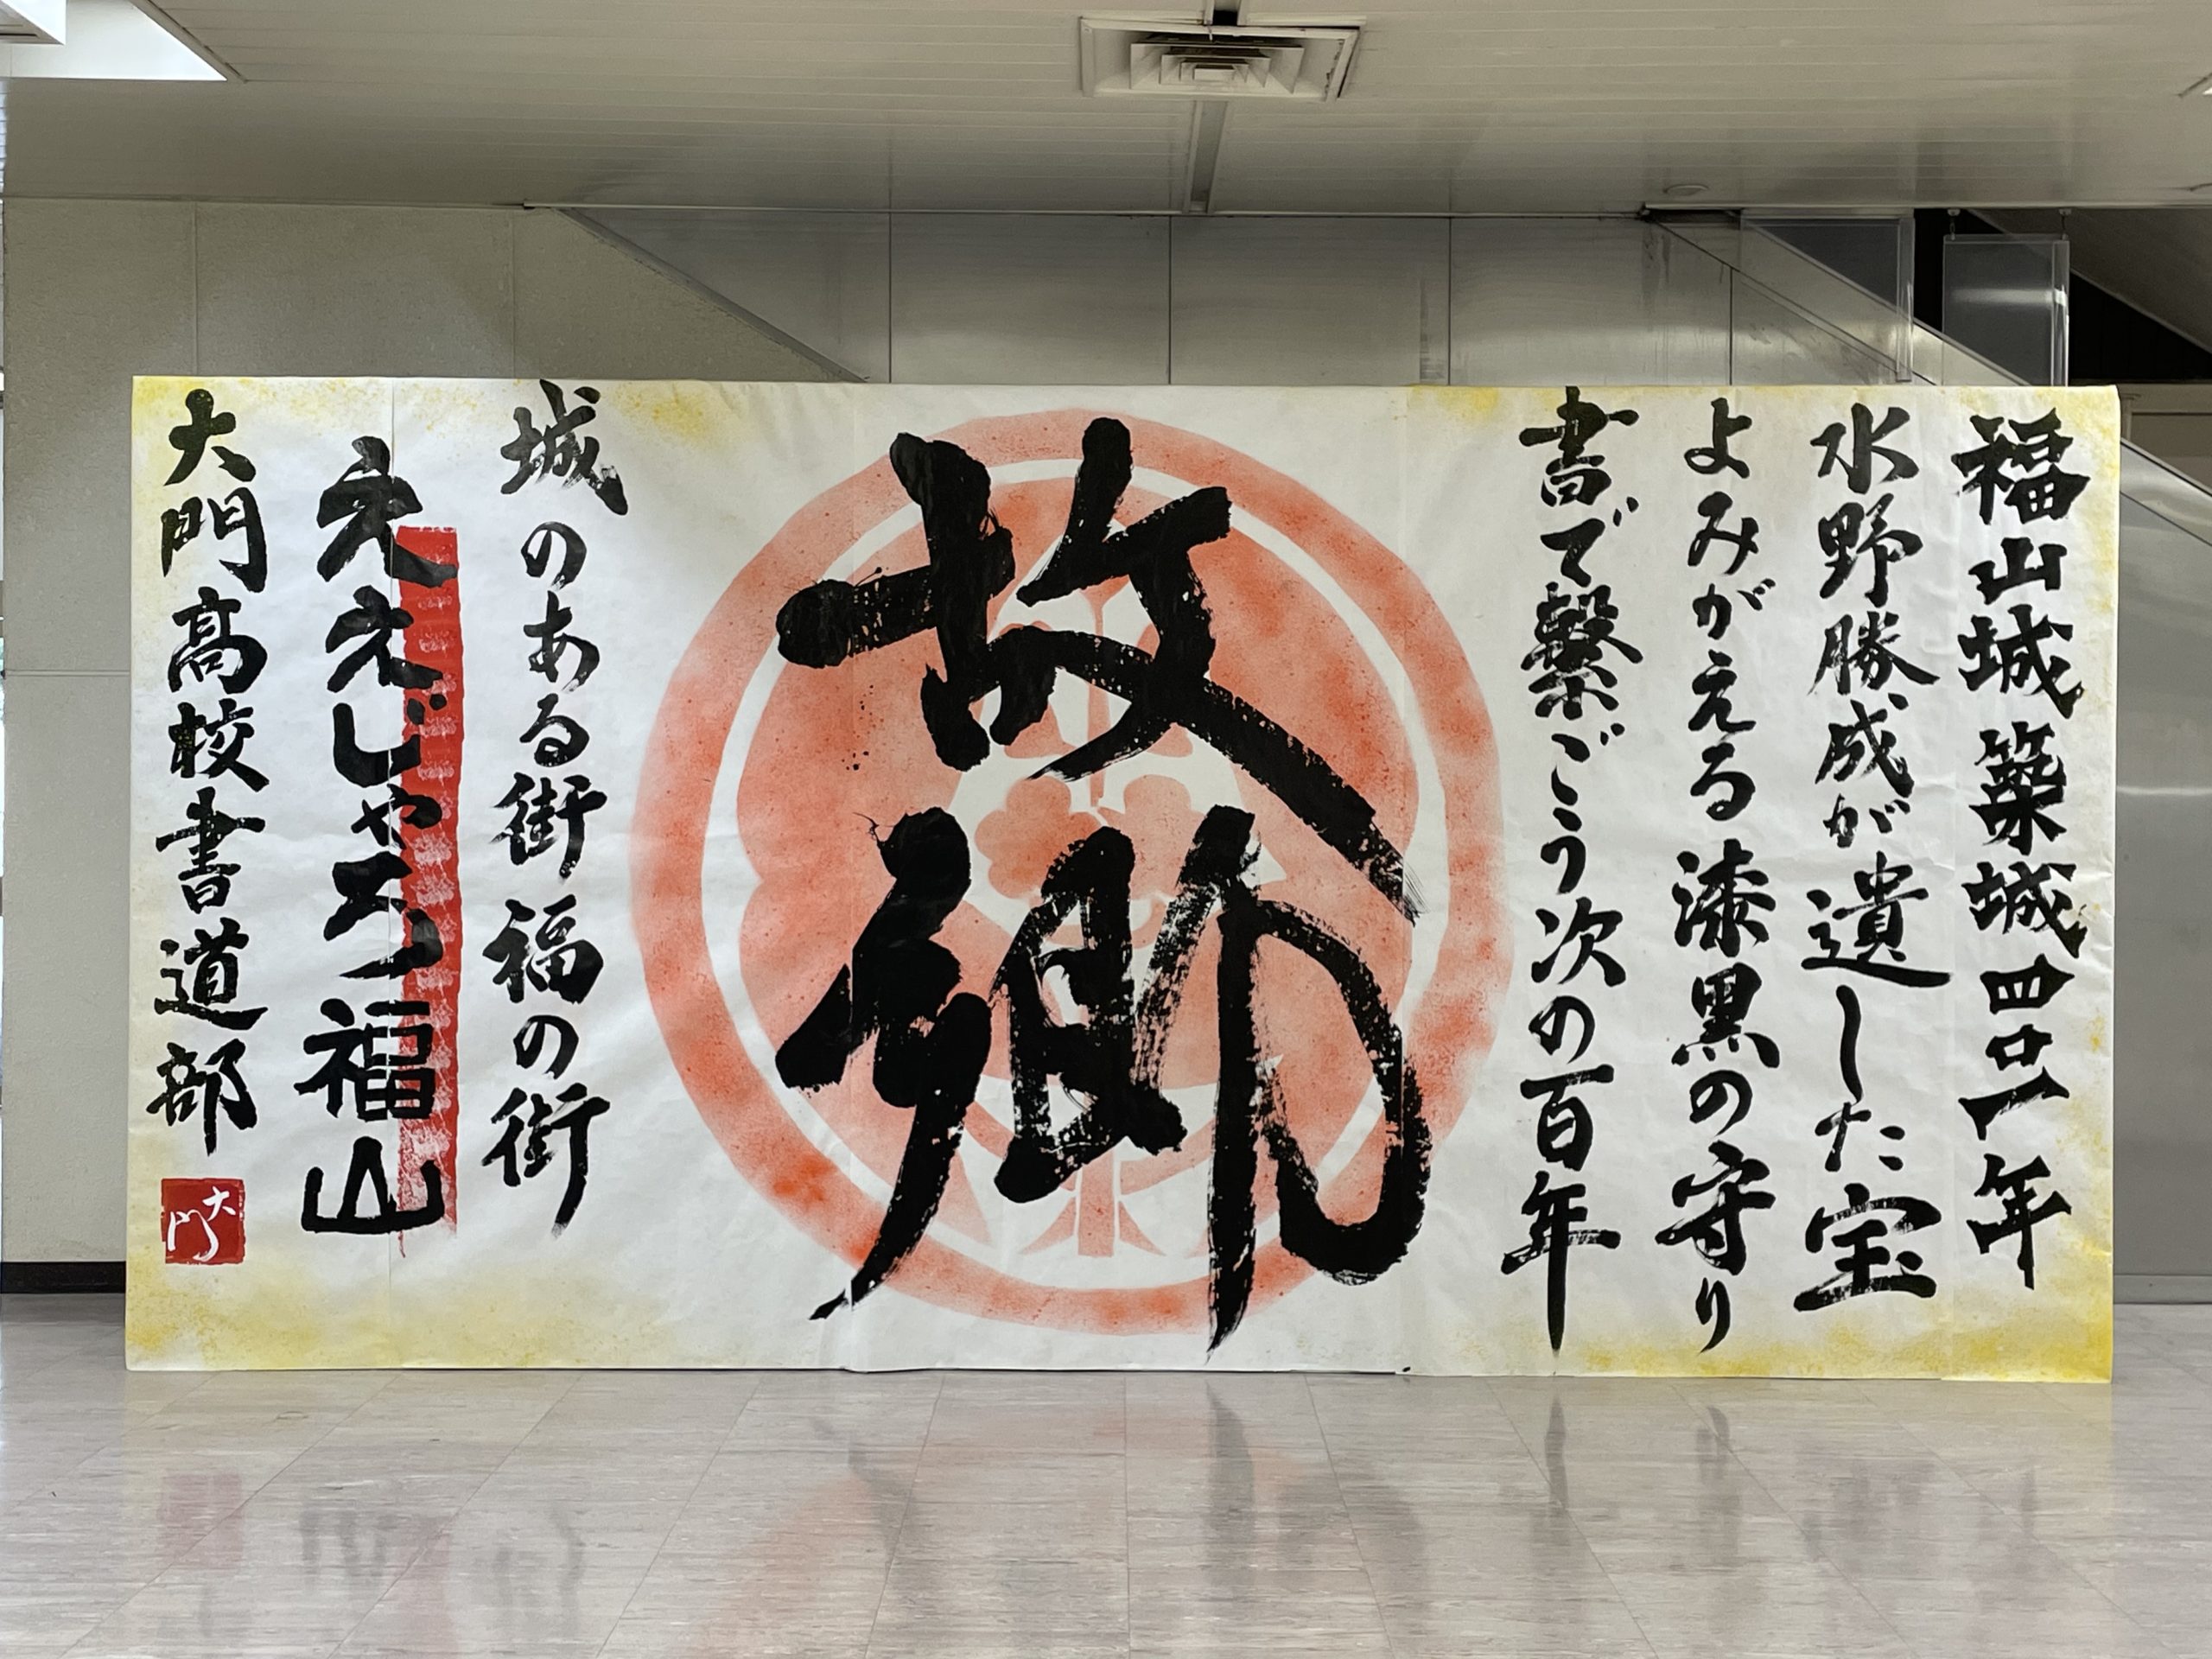 福山城築城四〇一年
水野勝成が遺した宝
よみがえる漆黒の守り
書で繋ごう次の百年
故郷
城のある街福の街
ええじゃろ福山
大門高校書道部
大門